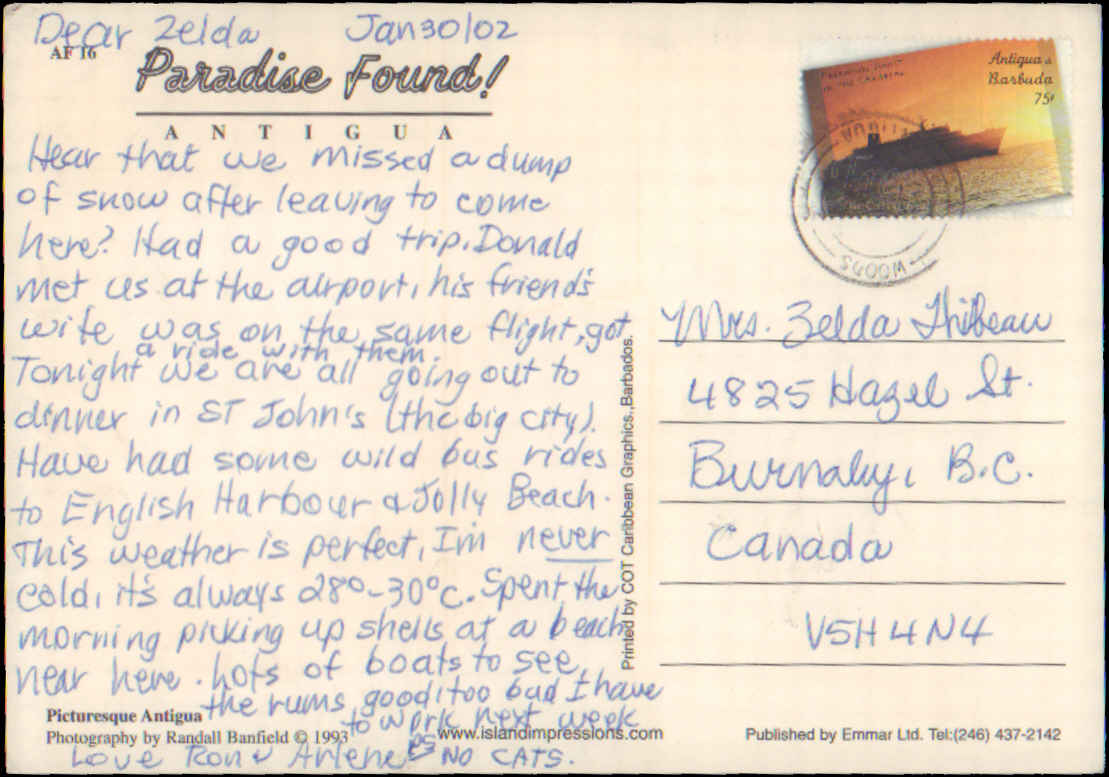 Dear Zelda Jan 30/02
AF 16
Paradise Found!
ANTIGUA
Hear that we missed a dump
of snow after leaving to come
here? Had a good trip. Donald
met us at the airport, his friend's
wife was on the same flight, got
a ride with them.
Tonight we are all going out to
dinner in ST John's (the big city).
Have had some wild bus rides
to English Harbour & Jolly Beach.
This weather is perfect, I'm never
cold, it's always 28°-30°C. Spent the
morning picking up shells at a beach
near here. Lots of boats to see,
the rums good, too bad I have
to work next week
Love Ron & Arlene PS NO CATS.
Picturesque Antigua
Photography by Randall Banfield © 1993
www.islandimpressions.com
Printed by COT Caribbean Graphics.,Barbados.
Antigua &
Barbuda
75¢
WOODS
Mrs. Zelda Thibeau
4825 Hazel St.
Burnaby, B.C.
Canada
V5H 4N4
Published by Emmar Ltd. Tel:(246) 437-2142